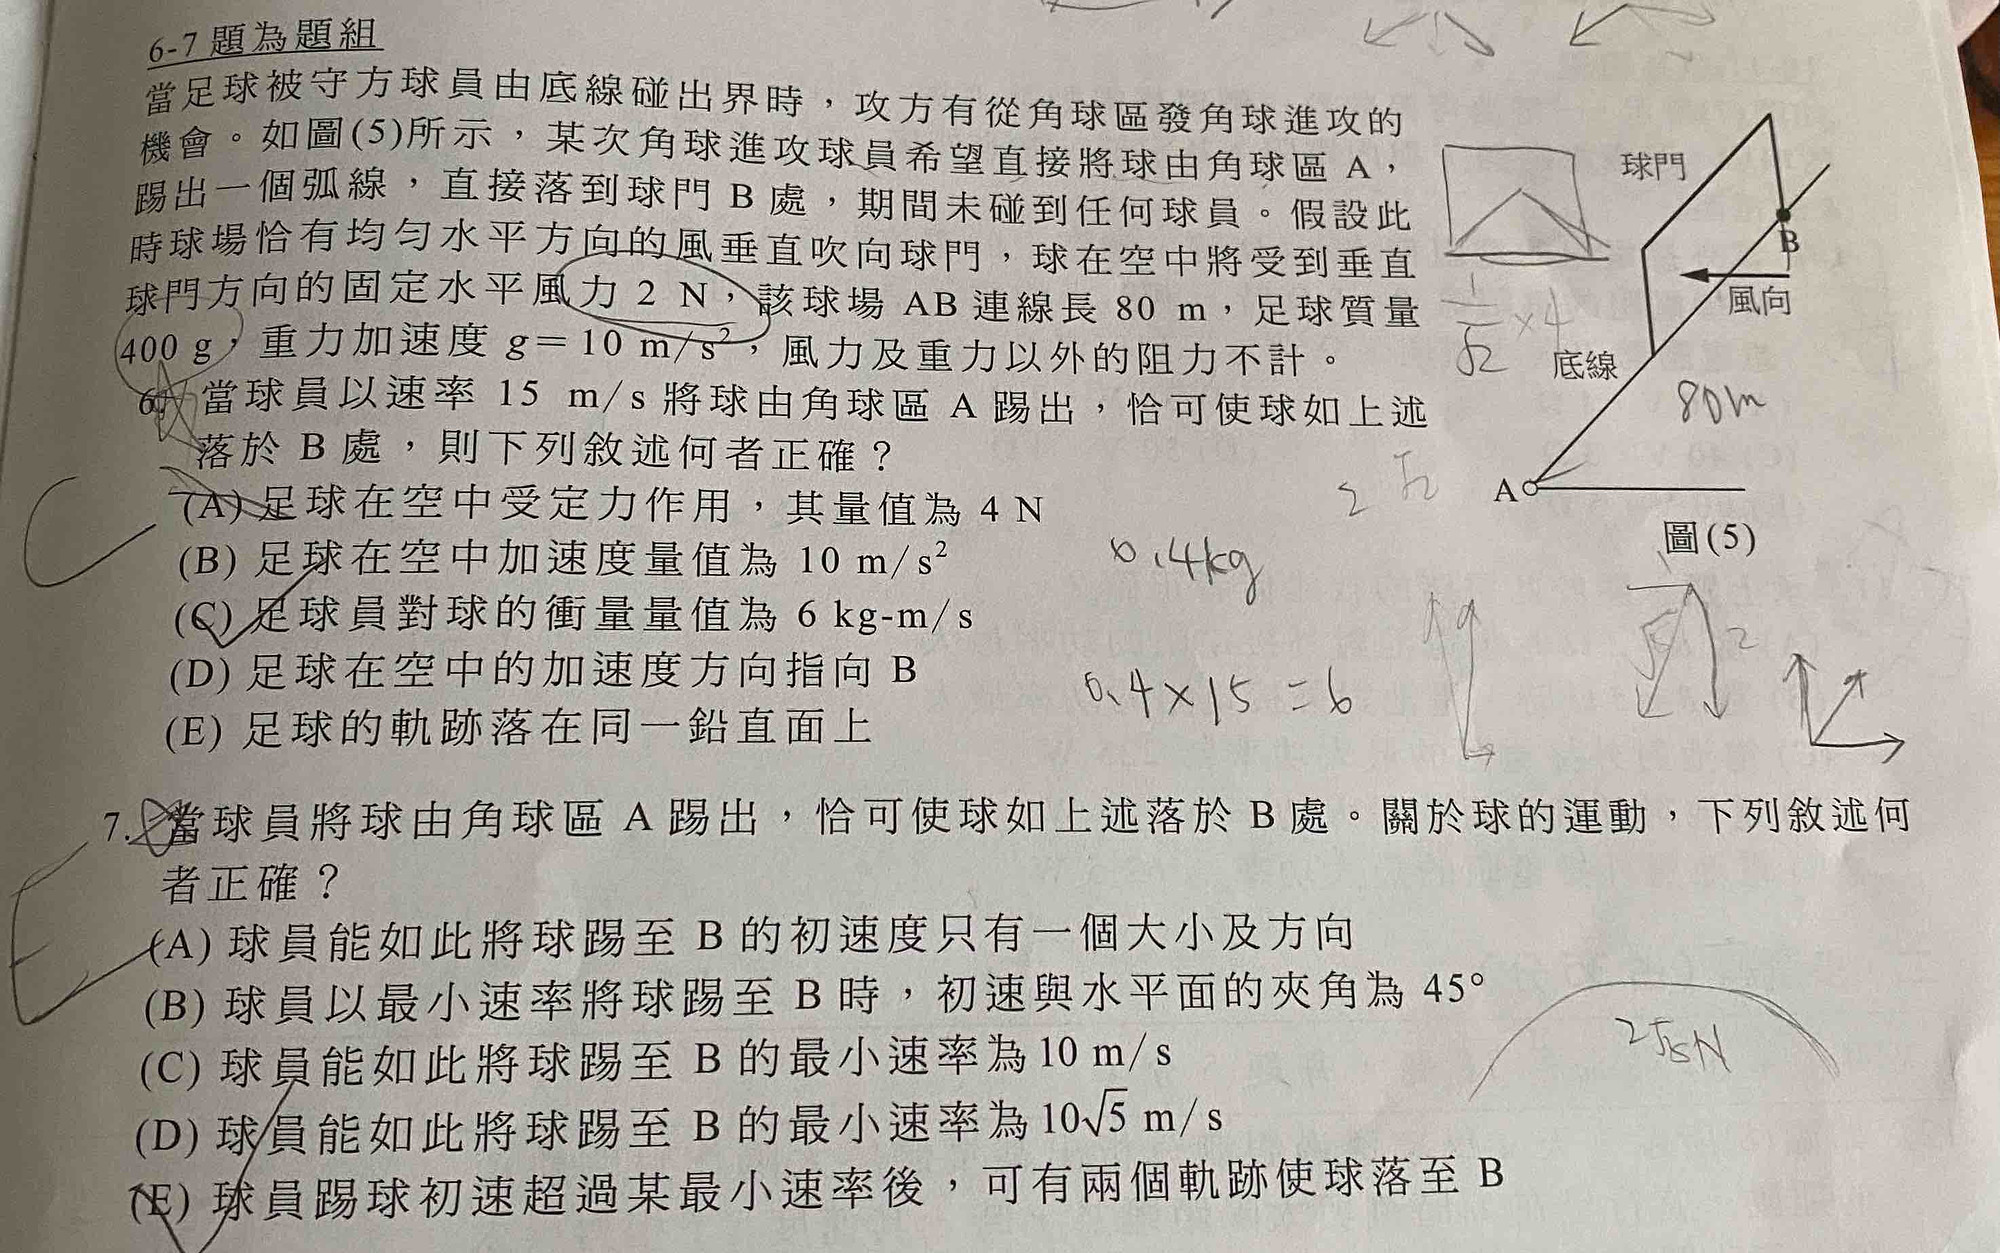 6-7 題為題組
當足球被守方球員由底線碰出界時，攻方有從角球區發角球進攻的
機會。如圖(5)所示，某次角球進攻球員希望直接將球由角球區 A，
踢出一個弧線，直接落到球門 B 處，期間未碰到任何球員。假設此
時球場恰有均勻水平方向的風垂直吹向球門，球在空中將受到垂直
球門方向的固定水平風力 2 N，該球場 AB 連線長 80 m，足球質量
400 g，重力加速度 g＝10 m/s²，風力及重力以外的阻力不計。
球門
B
風向
底線
80m
A
圖(5)
1/√2 ×4
6. 當球員以速率 15 m/s 將球由角球區 A 踢出，恰可使球如上述
落於 B 處，則下列敘述何者正確？
C
(A) 足球在空中受定力作用，其量值為 4 N
(B) 足球在空中加速度量值為 10 m/s²
(C) 足球員對球的衝量量值為 6 kg-m/s
(D) 足球在空中的加速度方向指向 B
(E) 足球的軌跡落在同一鉛直面上
0.4kg
0.4×15=6
2
7. 當球員將球由角球區 A 踢出，恰可使球如上述落於 B 處。關於球的運動，下列敘述何
者正確？
E
(A) 球員能如此將球踢至 B 的初速度只有一個大小及方向
(B) 球員以最小速率將球踢至 B 時，初速與水平面的夾角為 45°
(C) 球員能如此將球踢至 B 的最小速率為 10 m/s
(D) 球員能如此將球踢至 B 的最小速率為 10√5 m/s
(E) 球員踢球初速超過某最小速率後，可有兩個軌跡使球落至 B
2√5N